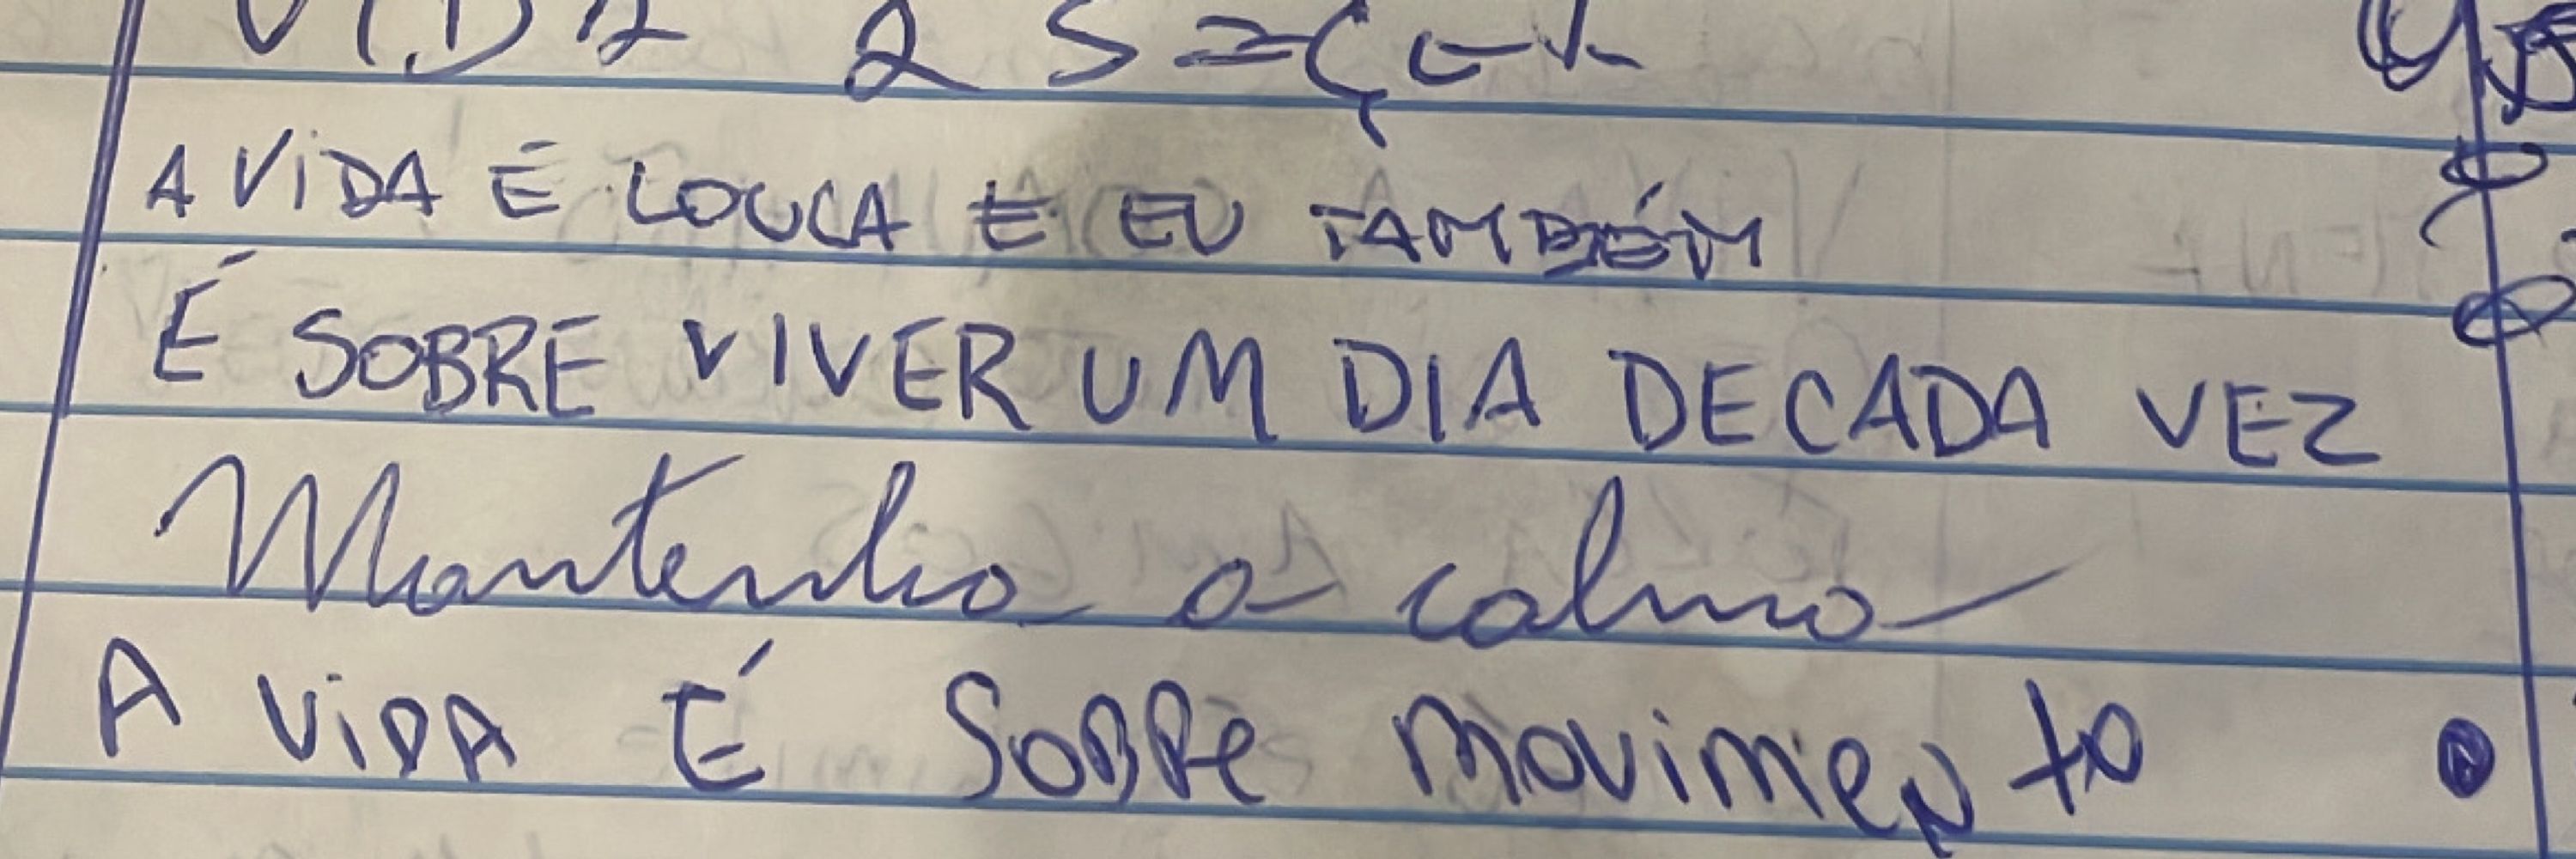 A VIDA É LOUCA E EU TAMBÉM
É SOBRE VIVER UM DIA DE CADA VEZ
Mantenha a calma
A ViDA É SOBRe movimeNto